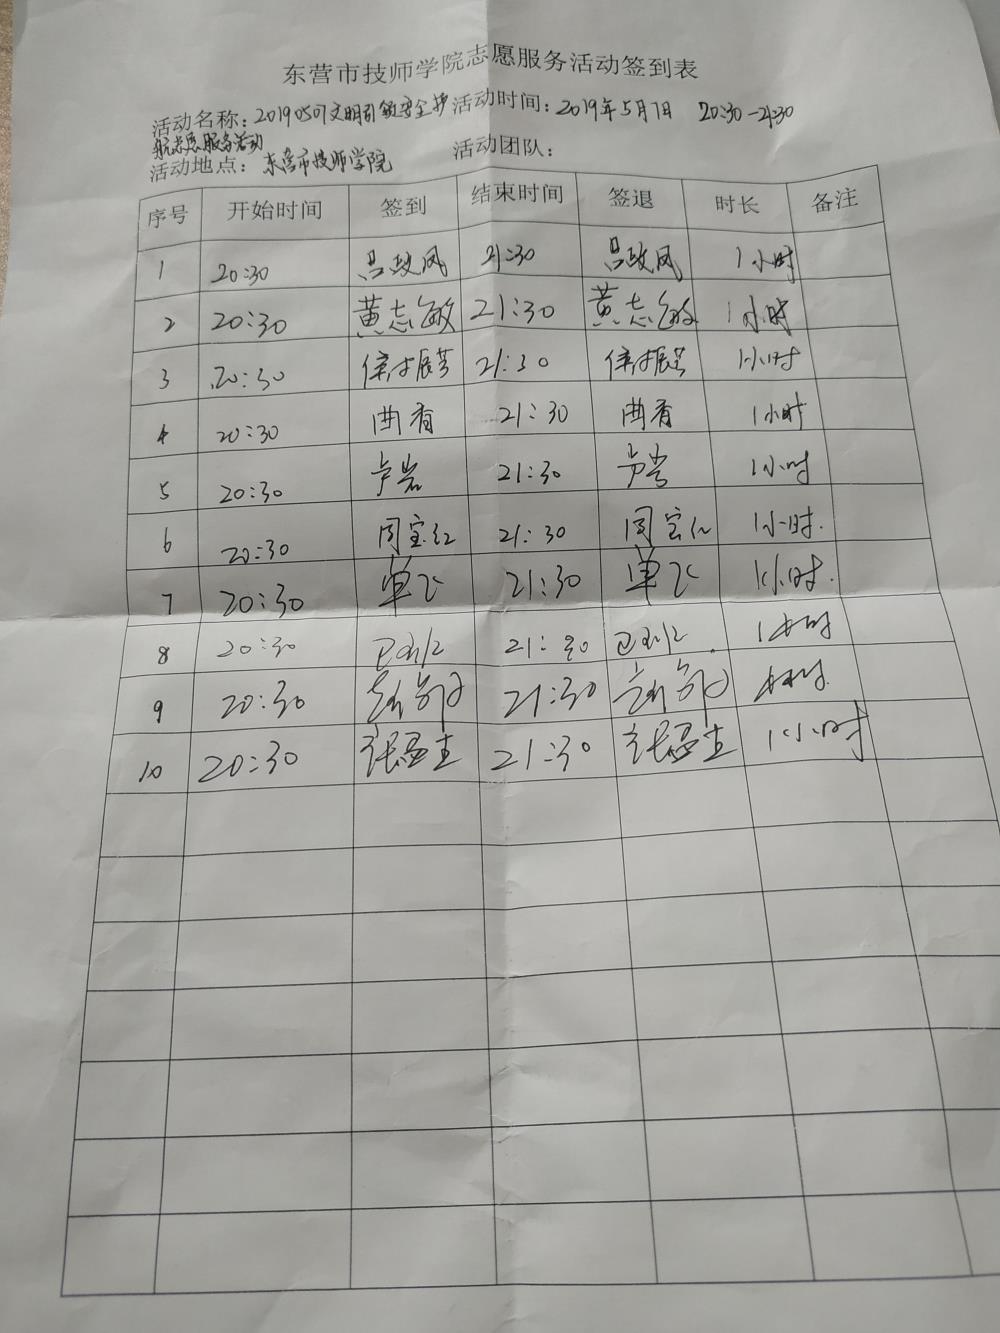 东营市技师学院志愿服务活动签到表
活动名称：20190507文明引领安全护 活动时间：2019年5月7日 20:30-21:30
航志愿服务活动
活动地点：东营市技师学院 活动团队：
序号 开始时间 签到 结束时间 签退 时长 备注
1 20:30 吕政风 21:30 吕政风 1小时
2 20:30 黄志敏 21:30 黄志敏 1小时
3 20:30 21:30 1小时
4 20:30 曲肴 21:30 曲肴 1小时
5 20:30 卢岩 21:30 卢岩 1小时
6 20:30 周宝红 21:30 周宝红 1小时.
7 20:30 单飞 21:30 单飞 1小时.
8 20:30 21:30 1小时
9 20:30 21:30 小时
10 20:30 21:30 1小时